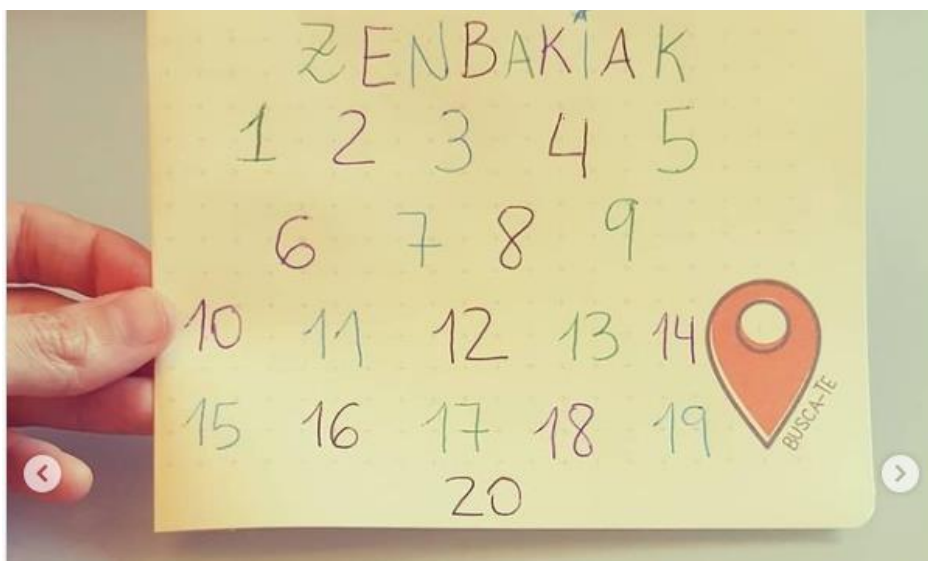 ZENBAKIAK
1 2 3 4 5
6 7 8 9
10 11 12 13 14
15 16 17 18 19
20
BUSCA-TE